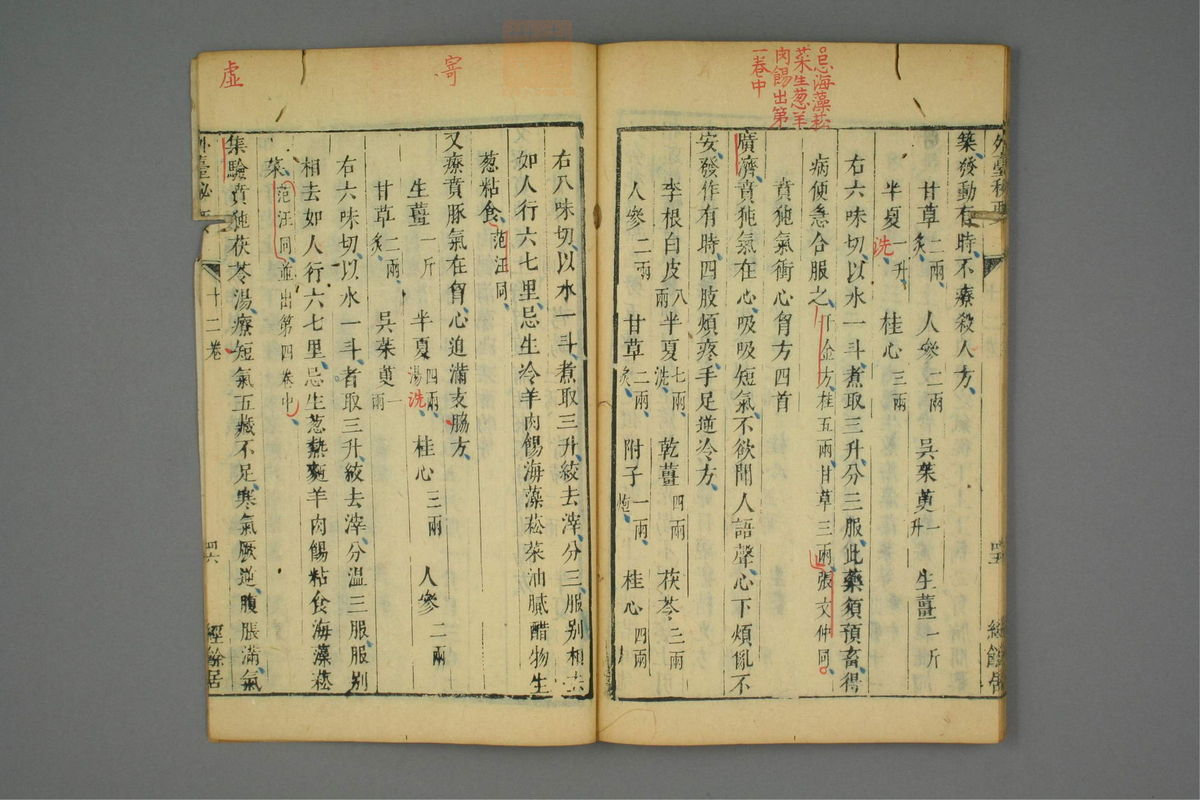 忌海藻菘
菜生葱羊
肉餳出第
一卷中
外臺秘要
四五
經餘居
築發動有時不療殺人方
甘草二兩炙 人參二兩 吳茱萸一升 生薑一斤
半夏一升洗 桂心三兩
右六味切以水一斗煮取三升分三服此藥須預畜得
病便急合服之千金方桂五兩甘草三兩張文仲同
賁㹠氣衝心胷方四首
廣濟賁㹠氣在心吸吸短氣不欲聞人語聲心下煩亂不
安發作有時四肢煩疼手足逆冷方
李根白皮八兩 半夏七兩洗 乾薑四兩 茯苓三兩
人參二兩 甘草二兩炙 附子一兩炮 桂心四兩
寄
虛
右八味切以水一斗煮取三升絞去滓分三服別相去
如人行六七里忌生冷羊肉餳海藻菘菜油膩醋物生
葱粘食范汪同
又療賁豚氣在胷心迫滿支脇方
生薑一斤 半夏四兩湯洗 桂心三兩 人參二兩
甘草二兩炙 吳茱萸一兩
右六味切以水一斗煮取三升絞去滓分溫三服服別
相去如人行六七里忌生葱熱麵羊肉餳粘食海藻菘
菜范汪同並出第四卷中
集驗賁㹠茯苓湯療短氣五藏不足寒氣厥逆腹脹滿氣
外臺秘要
十二卷
四六
經餘居